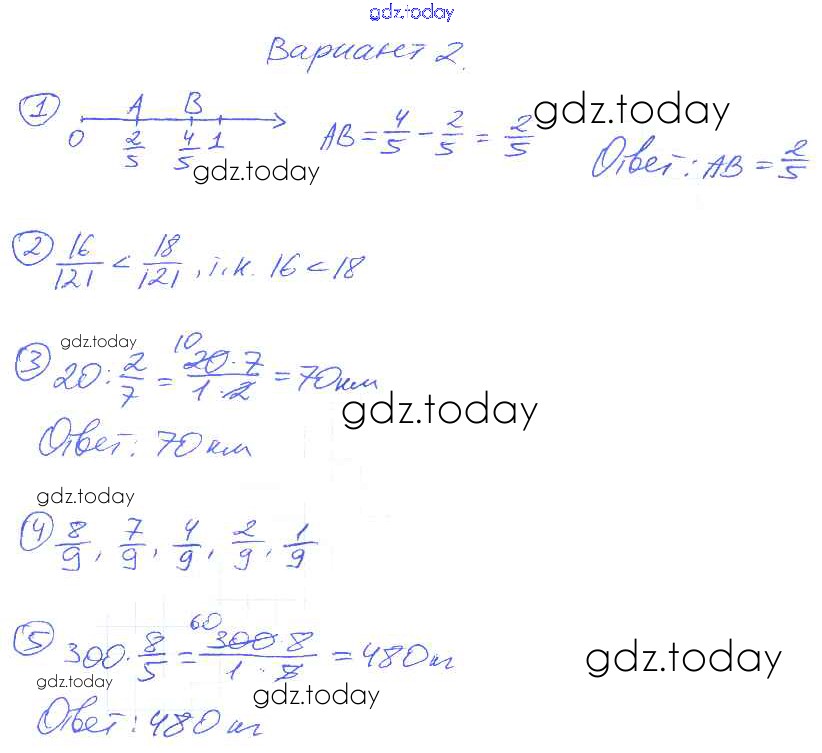 gdz.today
Вариант 2.
① 0 A 2/5 B 4/5 1 AB = 4/5 - 2/5 = 2/5 gdz.today
Ответ: AB = 2/5
gdz.today
② 16/121 < 18/121, т.к. 16 < 18
gdz.today
③ 20 : 2/7 = 10 20·7/1·2 = 70 км
gdz.today
Ответ: 70 км
gdz.today
④ 8/9, 7/9, 4/9, 2/9, 1/9
⑤ 300 · 8/5 = 60 300·8/1·5 = 480 кг
gdz.today
gdz.today
gdz.today
Ответ: 480 кг